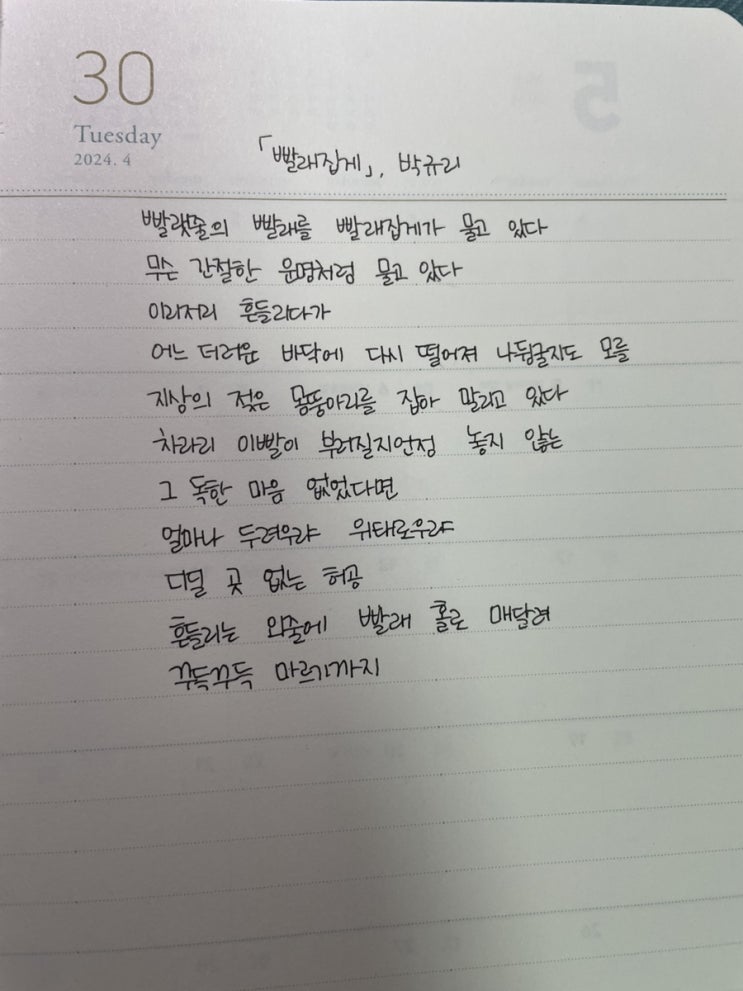 30
Tuesday
2024. 4
「빨래집게」, 박규리
빨랫줄의 빨래를 빨래집게가 물고 있다
무슨 간절한 운명처럼 물고 있다
이리저리 흔들리다가
어느 더러운 바닥에 다시 떨어져 나뒹굴지도 모를
지상의 젖은 몸뚱아리를 잡아 말리고 있다
차라리 이빨이 부러질지언정 놓지 않는
그 독한 마음 없었다면
얼마나 두려우랴 위태로우랴
디딜 곳 없는 허공
흔들리는 외줄에 빨래 홀로 매달려
꾸득꾸득 마르기까지